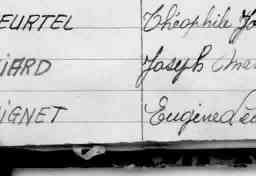 EURTEL Théophile Jo
IARD Joseph Mar
IGNET Eugène